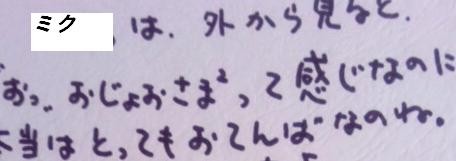 ミク は、外から見ると、
おっ、おじょおさま²って感じなのに
本当はとってもおてんばなのね。